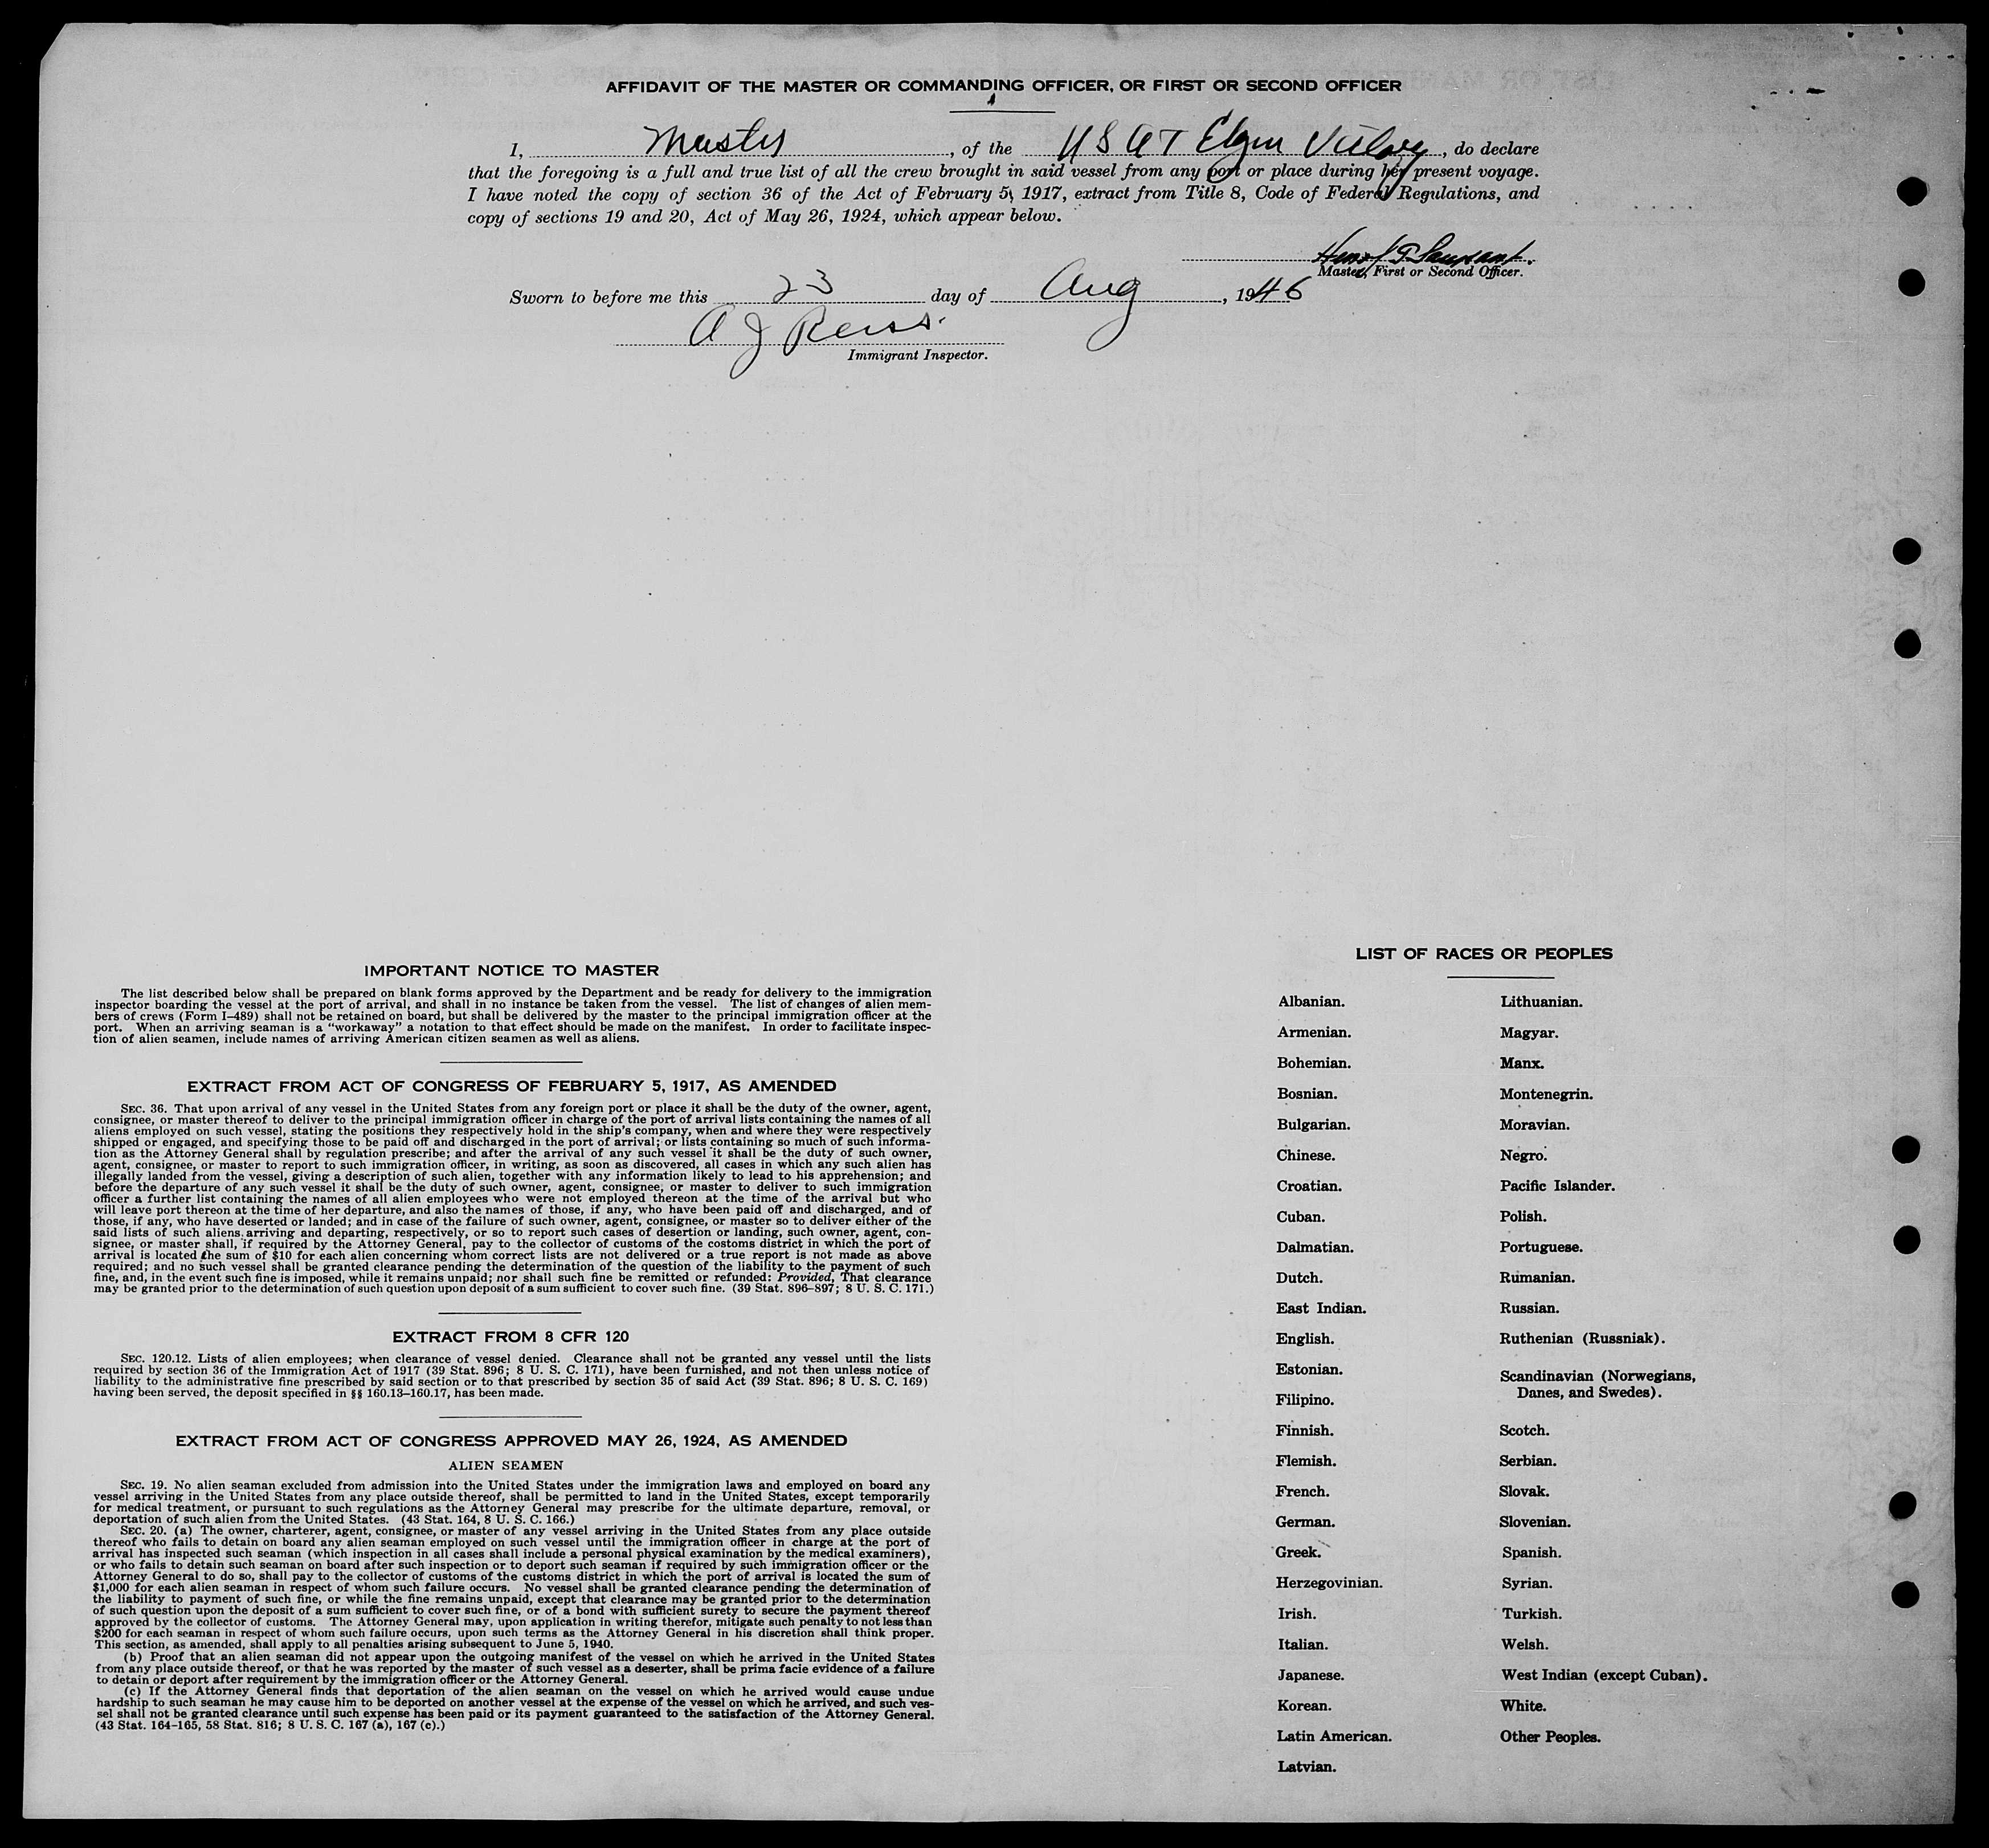 AFFIDAVIT OF THE MASTER OR COMMANDING OFFICER, OR FIRST OR SECOND OFFICER
I, Master, of the USAT Elgin Victory, do declare
that the foregoing is a full and true list of all the crew brought in said vessel from any port or place during her present voyage.
I have noted the copy of section 36 of the Act of February 5, 1917, extract from Title 8, Code of Federal Regulations, and
copy of sections 19 and 20, Act of May 26, 1924, which appear below.
Master, First or Second Officer.
Sworn to before me this 23 day of Aug, 1946
A J Reiss.
Immigrant Inspector.
IMPORTANT NOTICE TO MASTER
The list described below shall be prepared on blank forms approved by the Department and be ready for delivery to the immigration
inspector boarding the vessel at the port of arrival, and shall in no instance be taken from the vessel. The list of changes of alien mem-
bers of crews (Form I–489) shall not be retained on board, but shall be delivered by the master to the principal immigration officer at the
port. When an arriving seaman is a "workaway" a notation to that effect should be made on the manifest. In order to facilitate inspec-
tion of alien seamen, include names of arriving American citizen seamen as well as aliens.
EXTRACT FROM ACT OF CONGRESS OF FEBRUARY 5, 1917, AS AMENDED
SEC. 36. That upon arrival of any vessel in the United States from any foreign port or place it shall be the duty of the owner, agent,
consignee, or master thereof to deliver to the principal immigration officer in charge of the port of arrival lists containing the names of all
aliens employed on such vessel, stating the positions they respectively hold in the ship's company, when and where they were respectively
shipped or engaged, and specifying those to be paid off and discharged in the port of arrival; or lists containing so much of such informa-
tion as the Attorney General shall by regulation prescribe; and after the arrival of any such vessel it shall be the duty of such owner,
agent, consignee, or master to report to such immigration officer, in writing, as soon as discovered, all cases in which any such alien has
illegally landed from the vessel, giving a description of such alien, together with any information likely to lead to his apprehension; and
before the departure of any such vessel it shall be the duty of such owner, agent, consignee, or master to deliver to such immigration
officer a further list containing the names of all alien employees who were not employed thereon at the time of the arrival but who
will leave port thereon at the time of her departure, and also the names of those, if any, who have been paid off and discharged, and of
those, if any, who have deserted or landed; and in case of the failure of such owner, agent, consignee, or master so to deliver either of the
said lists of such aliens arriving and departing, respectively, or so to report such cases of desertion or landing, such owner, agent, con-
signee, or master shall, if required by the Attorney General, pay to the collector of customs of the costoms district in which the port of
arrival is located the sum of $10 for each alien concerning whom correct lists are not delivered or a true report is not made as above
required; and no such vessel shall be granted clearance pending the determination of the question of the liability to the payment of such
fine, and, in the event such fine is imposed, while it remains unpaid; nor shall such fine be remitted or refunded: Provided, That clearance
may be granted prior to the determination of such question upon deposit of a sum sufficient to cover such fine. (39 Stat. 896–897; 8 U. S. C. 171.)
EXTRACT FROM 8 CFR 120
SEC. 120.12. Lists of alien employees; when clearance of vessel denied. Clearance shall not be granted any vessel until the lists
required by section 36 of the Immigration Act of 1917 (39 Stat. 896; 8 U. S. C. 171), have been furnished, and not then unless notice of
liability to the administrative fine prescribed by said section or to that prescribed by section 35 of said Act (39 Stat. 896; 8 U. S. C. 169)
having been served, the deposit specified in §§ 160.13–160.17, has been made.
EXTRACT FROM ACT OF CONGRESS APPROVED MAY 26, 1924, AS AMENDED
ALIEN SEAMEN
SEC. 19. No alien seaman excluded from admission into the United States under the immigration laws and employed on board any
vessel arriving in the United States from any place outside thereof, shall be permitted to land in the United States, except temporarily
for medical treatment, or pursuant to such regulations as the Attorney General may prescribe for the ultimate departure, removal, or
deportation of such alien from the United States. (43 Stat. 164, 8 U. S. C. 166.)
SEC. 20. (a) The owner, charterer, agent, consignee, or master of any vessel arriving in the United States from any place outside
thereof who fails to detain on board any alien seaman employed on such vessel until the immigration officer in charge at the port of
arrival has inspected such seaman (which inspection in all cases shall include a personal physical examination by the medical examiners),
or who fails to detain such seaman on board after such inspection or to deport such seaman if required by such immigration officer or the
Attorney General to do so, shall pay to the collector of customs of the customs district in which the port of arrival is located the sum of
$1,000 for each alien seaman in respect of whom such failure occurs. No vessel shall be granted clearance pending the determination of
the liability to payment of such fine, or while the fine remains unpaid, except that clearance may be granted prior to the determination
of such question upon the deposit of a sum sufficient to cover such fine, or of a bond with sufficient surety to secure the payment thereof
approved by the collector of customs. The Attorney General may, upon application in writing therefor, mitigate such penalty to not less than
$200 for each seaman in respect of whom such failure occurs, upon such terms as the Attorney General in his discretion shall think proper.
This section, as amended, shall apply to all penalties arising subsequent to June 5, 1940.
(b) Proof that an alien seaman did not appear upon the outgoing manifest of the vessel on which he arrived in the United States
from any place outside thereof, or that he was reported by the master of such vessel as a deserter, shall be prima facie evidence of a failure
to detain or deport after requirement by the immigration officer or the Attorney General.
(c) If the Attorney General finds that deportation of the alien seaman on the vessel on which he arrived would cause undue
hardship to such seaman he may cause him to be deported on another vessel at the expense of the vessel on which he arrived, and such ves-
sel shall not be granted clearance until such expense has been paid or its payment guaranteed to the satisfaction of the Attorney General.
(43 Stat. 164–165, 58 Stat. 816; 8 U. S. C. 167 (a), 167 (c).)
LIST OF RACES OR PEOPLES
Albanian.
Armenian.
Bohemian.
Bosnian.
Bulgarian.
Chinese.
Croatian.
Cuban.
Dalmatian.
Dutch.
East Indian.
English.
Estonian.
Filipino.
Finnish.
Flemish.
French.
German.
Greek.
Herzegovinian.
Irish.
Italian.
Japanese.
Korean.
Latin American.
Latvian.
Lithuanian.
Magyar.
Manx.
Montenegrin.
Moravian.
Negro.
Pacific Islander.
Polish.
Portuguese.
Rumanian.
Russian.
Ruthenian (Russniak).
Scandinavian (Norwegians,
Danes, and Swedes).
Scotch.
Serbian.
Slovak.
Slovenian.
Spanish.
Syrian.
Turkish.
Welsh.
West Indian (except Cuban).
White.
Other Peoples.